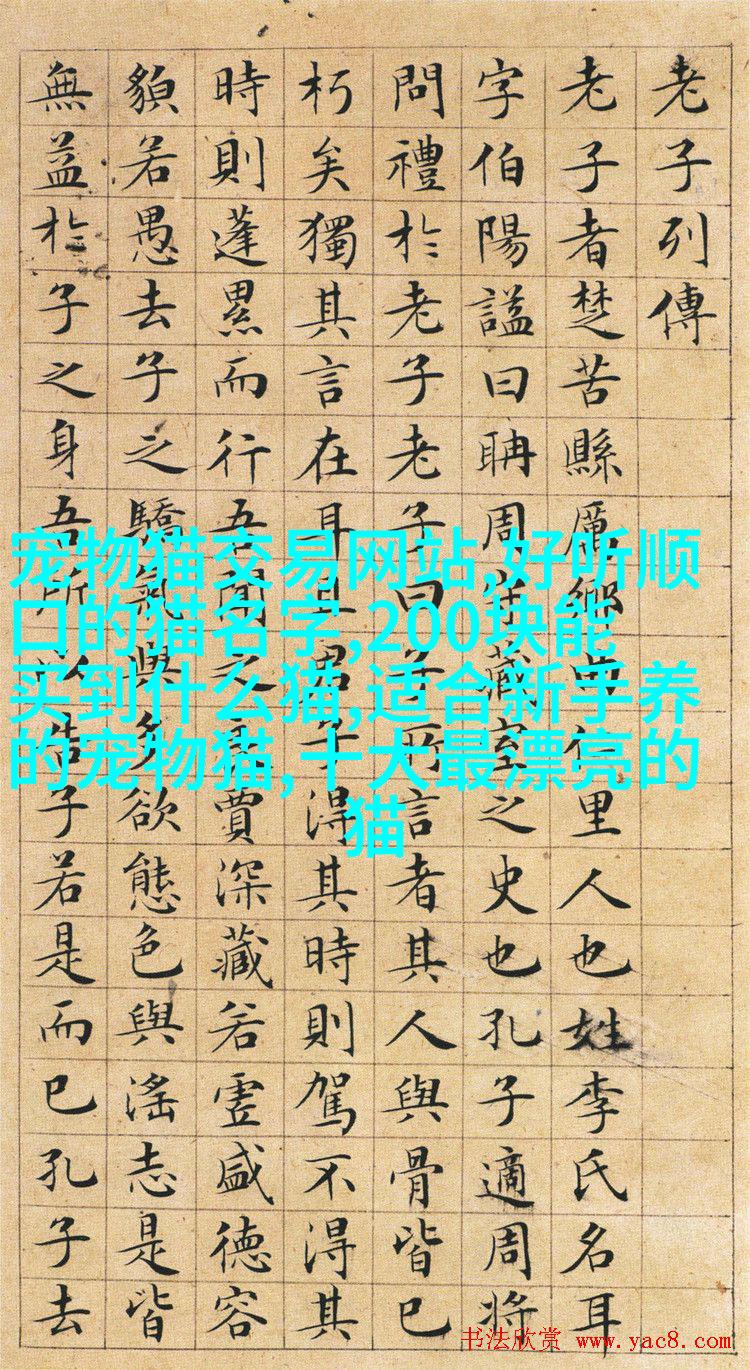 老子列傳
老子者楚苦縣厲鄉曲仁里人也姓李氏名耳
字伯陽謚曰聃周守藏室之史也孔子適周將
問禮於老子老子曰子所言者其人與骨皆已
朽矣獨其言在耳且君子淂其時則駕不淂其
時則蓬累而行吾聞之良賈深藏若虛盛德容
䫉若愚去子之驕氣與多欲態色與滛志是皆
無益於子之身吾所以告子若是而已孔子去
宠物猫交易网站,好听顺
口的猫名字,200块能
买到什么猫,适合新手养
的宠物猫,十大最漂亮的
猫
书法欣赏 www.yac8.com